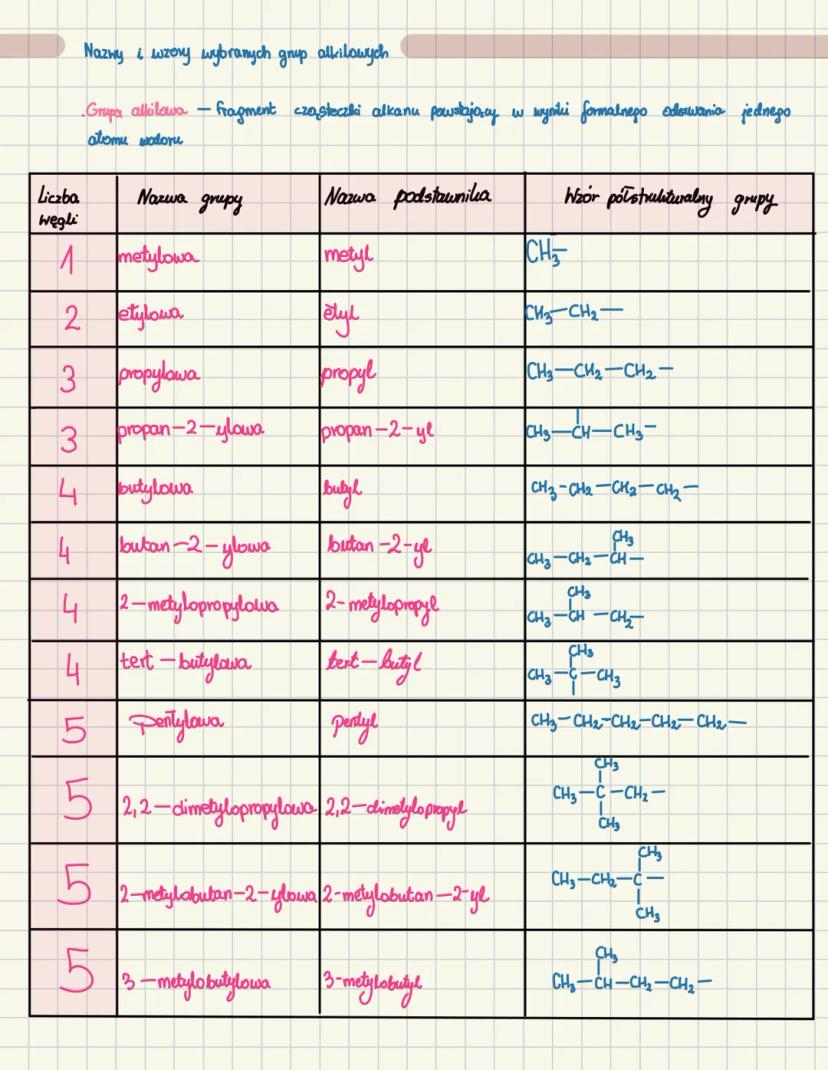 Nazwy i wzory wybranych grup alkilowych
Grupa alkilowa — fragment cząsteczki alkanu powstający w wyniki formalnego oderwania jednego
atomu wodoru
Liczba węgli Nazwa grupy Nazwa podstawnika Wzór półstrukturalny grupy
1 metylowa metyl CH₃—
2 etylowa etyl CH₃—CH₂—
3 propylowa propyl CH₃—CH₂—CH₂—
3 propan-2-ylowa propan-2-yl CH₃—CH—CH₃—
4 butylowa butyl CH₃-CH₂—CH₂—CH₂—
CH₃
4 butan-2-ylowa butan-2-yl CH₃—CH₂—CH—
CH₃
4 2-metylopropylowa 2-metylopropyl CH₃—CH—CH₂—
CH₃
4 tert-butylowa tert-butyl CH₃—C—CH₃
5 Pentylowa pentyl CH₃—CH₂—CH₂—CH₂—CH₂—
CH₃
5 2,2-dimetylopropylowa 2,2-dimetylopropyl CH₃—C—CH₂—
CH₃
CH₃
5 2-metylobutan-2-ylowa 2-metylobutan-2-yl CH₃—CH₂—C—
CH₃
CH₃
5 3-metylobutylowa 3-metylobutyl CH₃—CH—CH₂—CH₂—